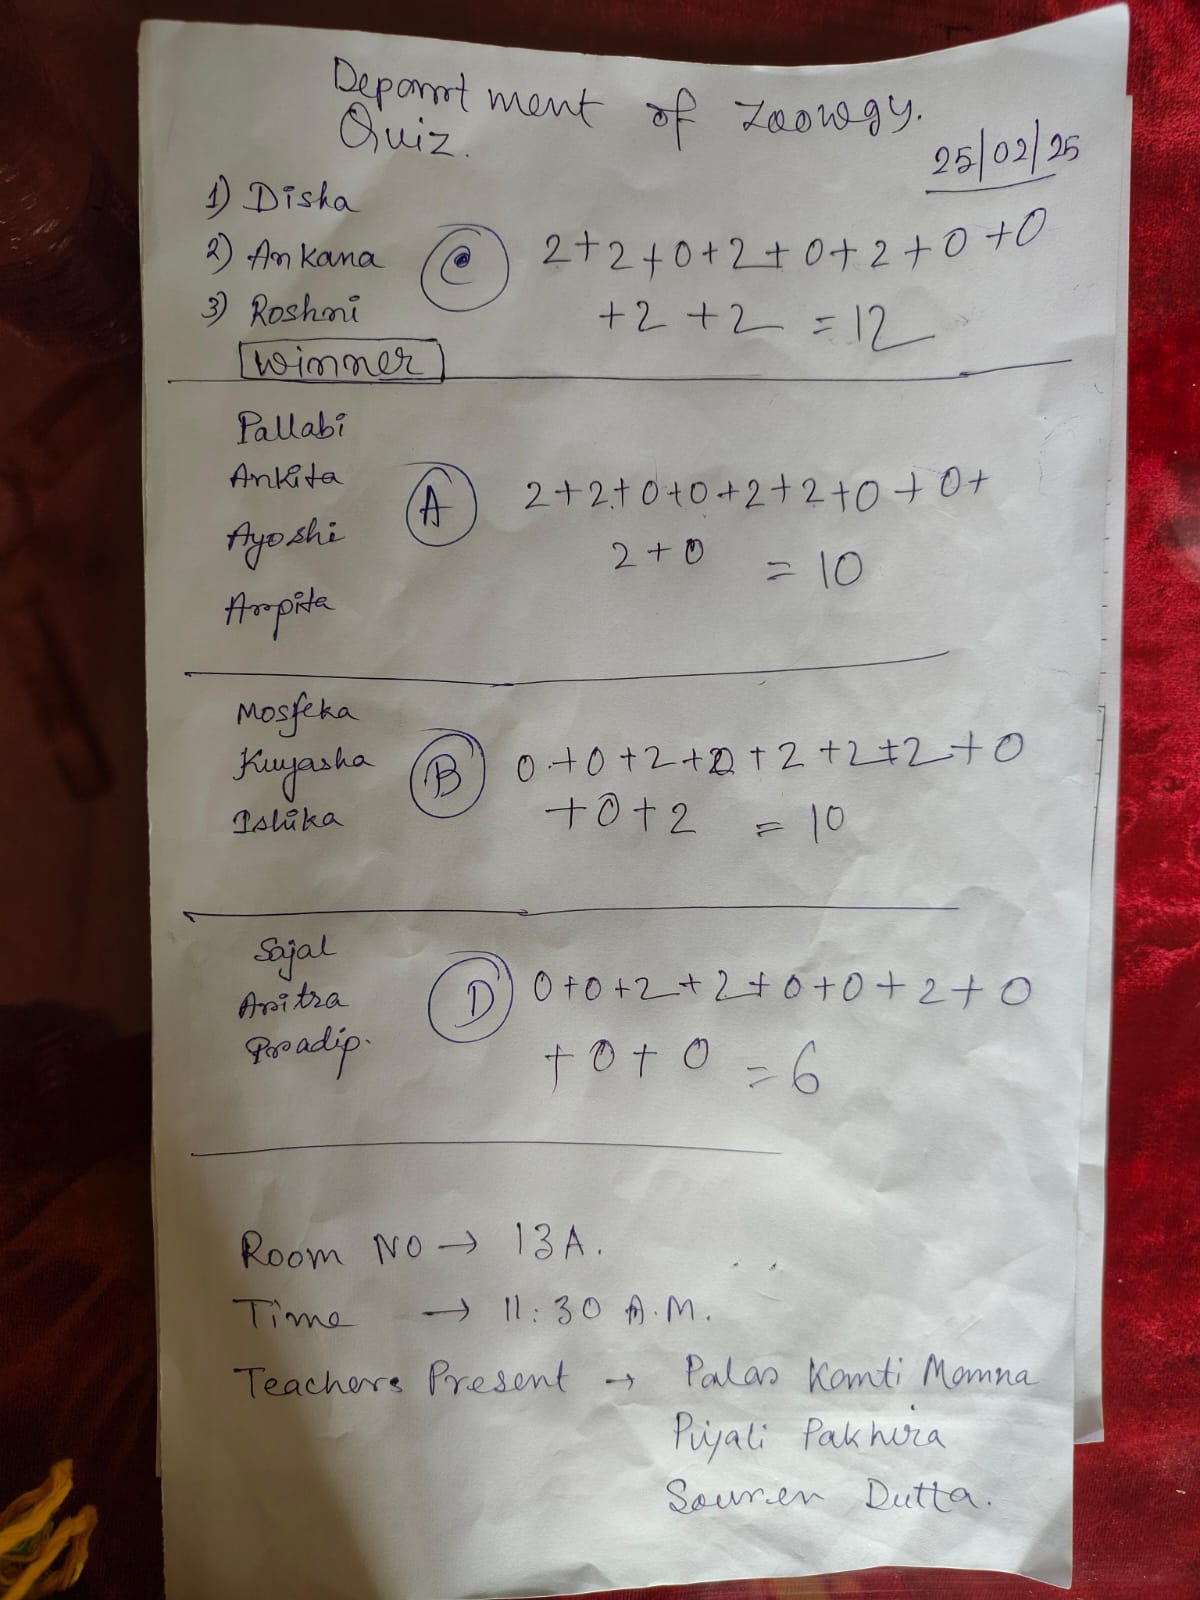 Department of Zoology.
Quiz.
25/02/25
1) Disha
2) Ankana
3) Roshni
Winner
C
2+2+0+2+0+2+0+0
+2+2 = 12
Pallabi
Ankita
Ayoshi
Arpita
A
2+2+0+0+2+2+0+0+
2+0 = 10
Mosfeka
Kuyasha
Ishika
B
0+0+2+2+2+2+2+0
+0+2 = 10
Sajal
Aritra
Pradip.
D
0+0+2+2+0+0+2+0
+0+0 = 6
Room NO → 13A.
Time → 11:30 A.M.
Teachers Present → Palas Kanti Manna
Piyali Pakhira
Souren Dutta.